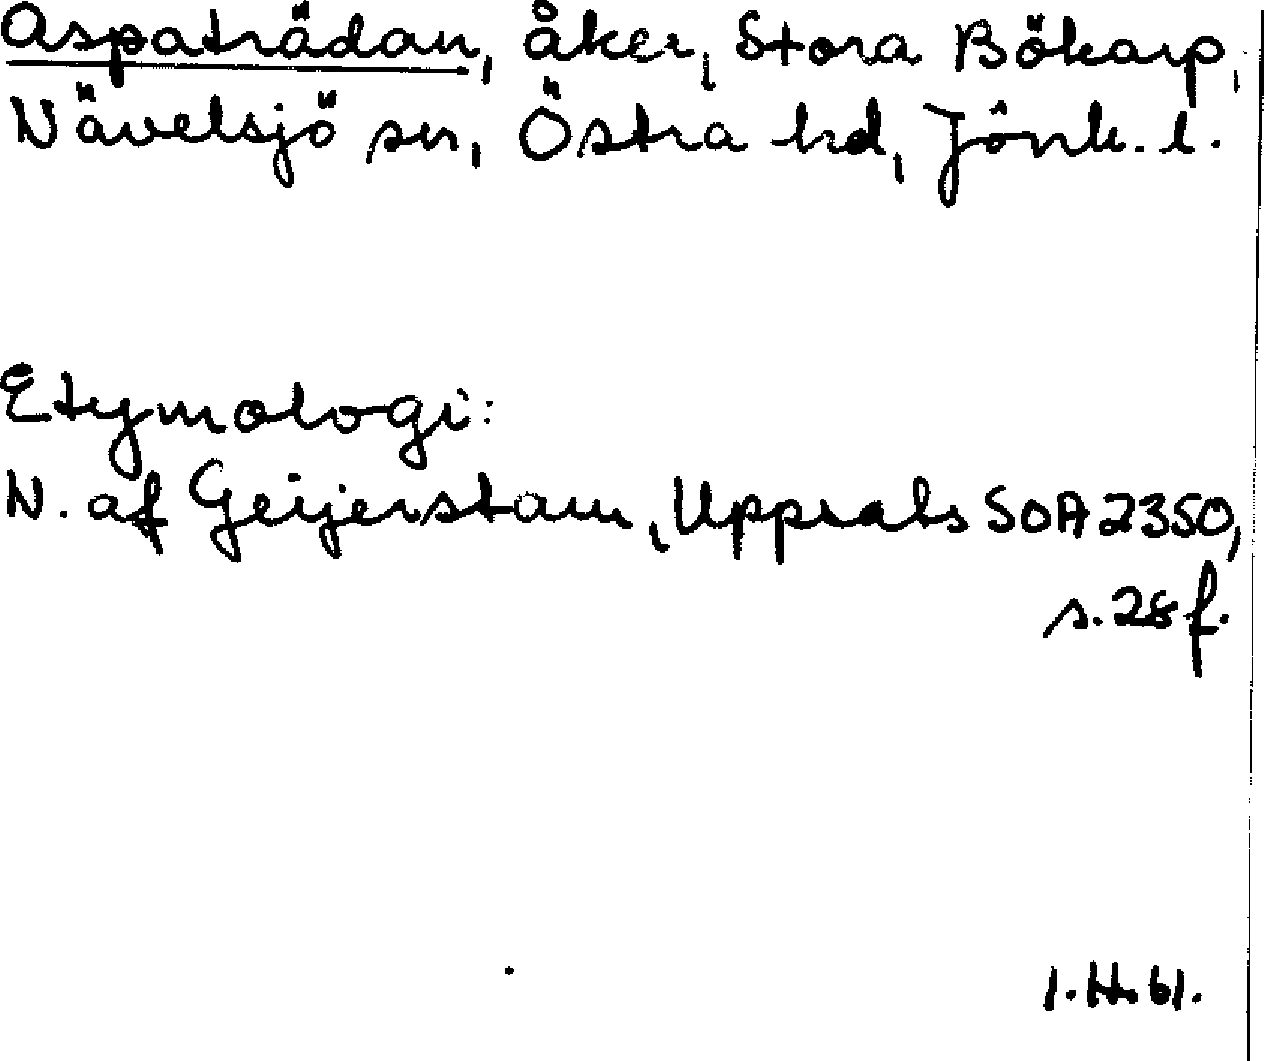 Aspaträdan, åker, Stora Bökarp,
Nävelsjö sn, Östra hd, Jönk. l.
Etymologi:
N. af Geijerstam, Uppsala SOA 2350,
s. 28 f.